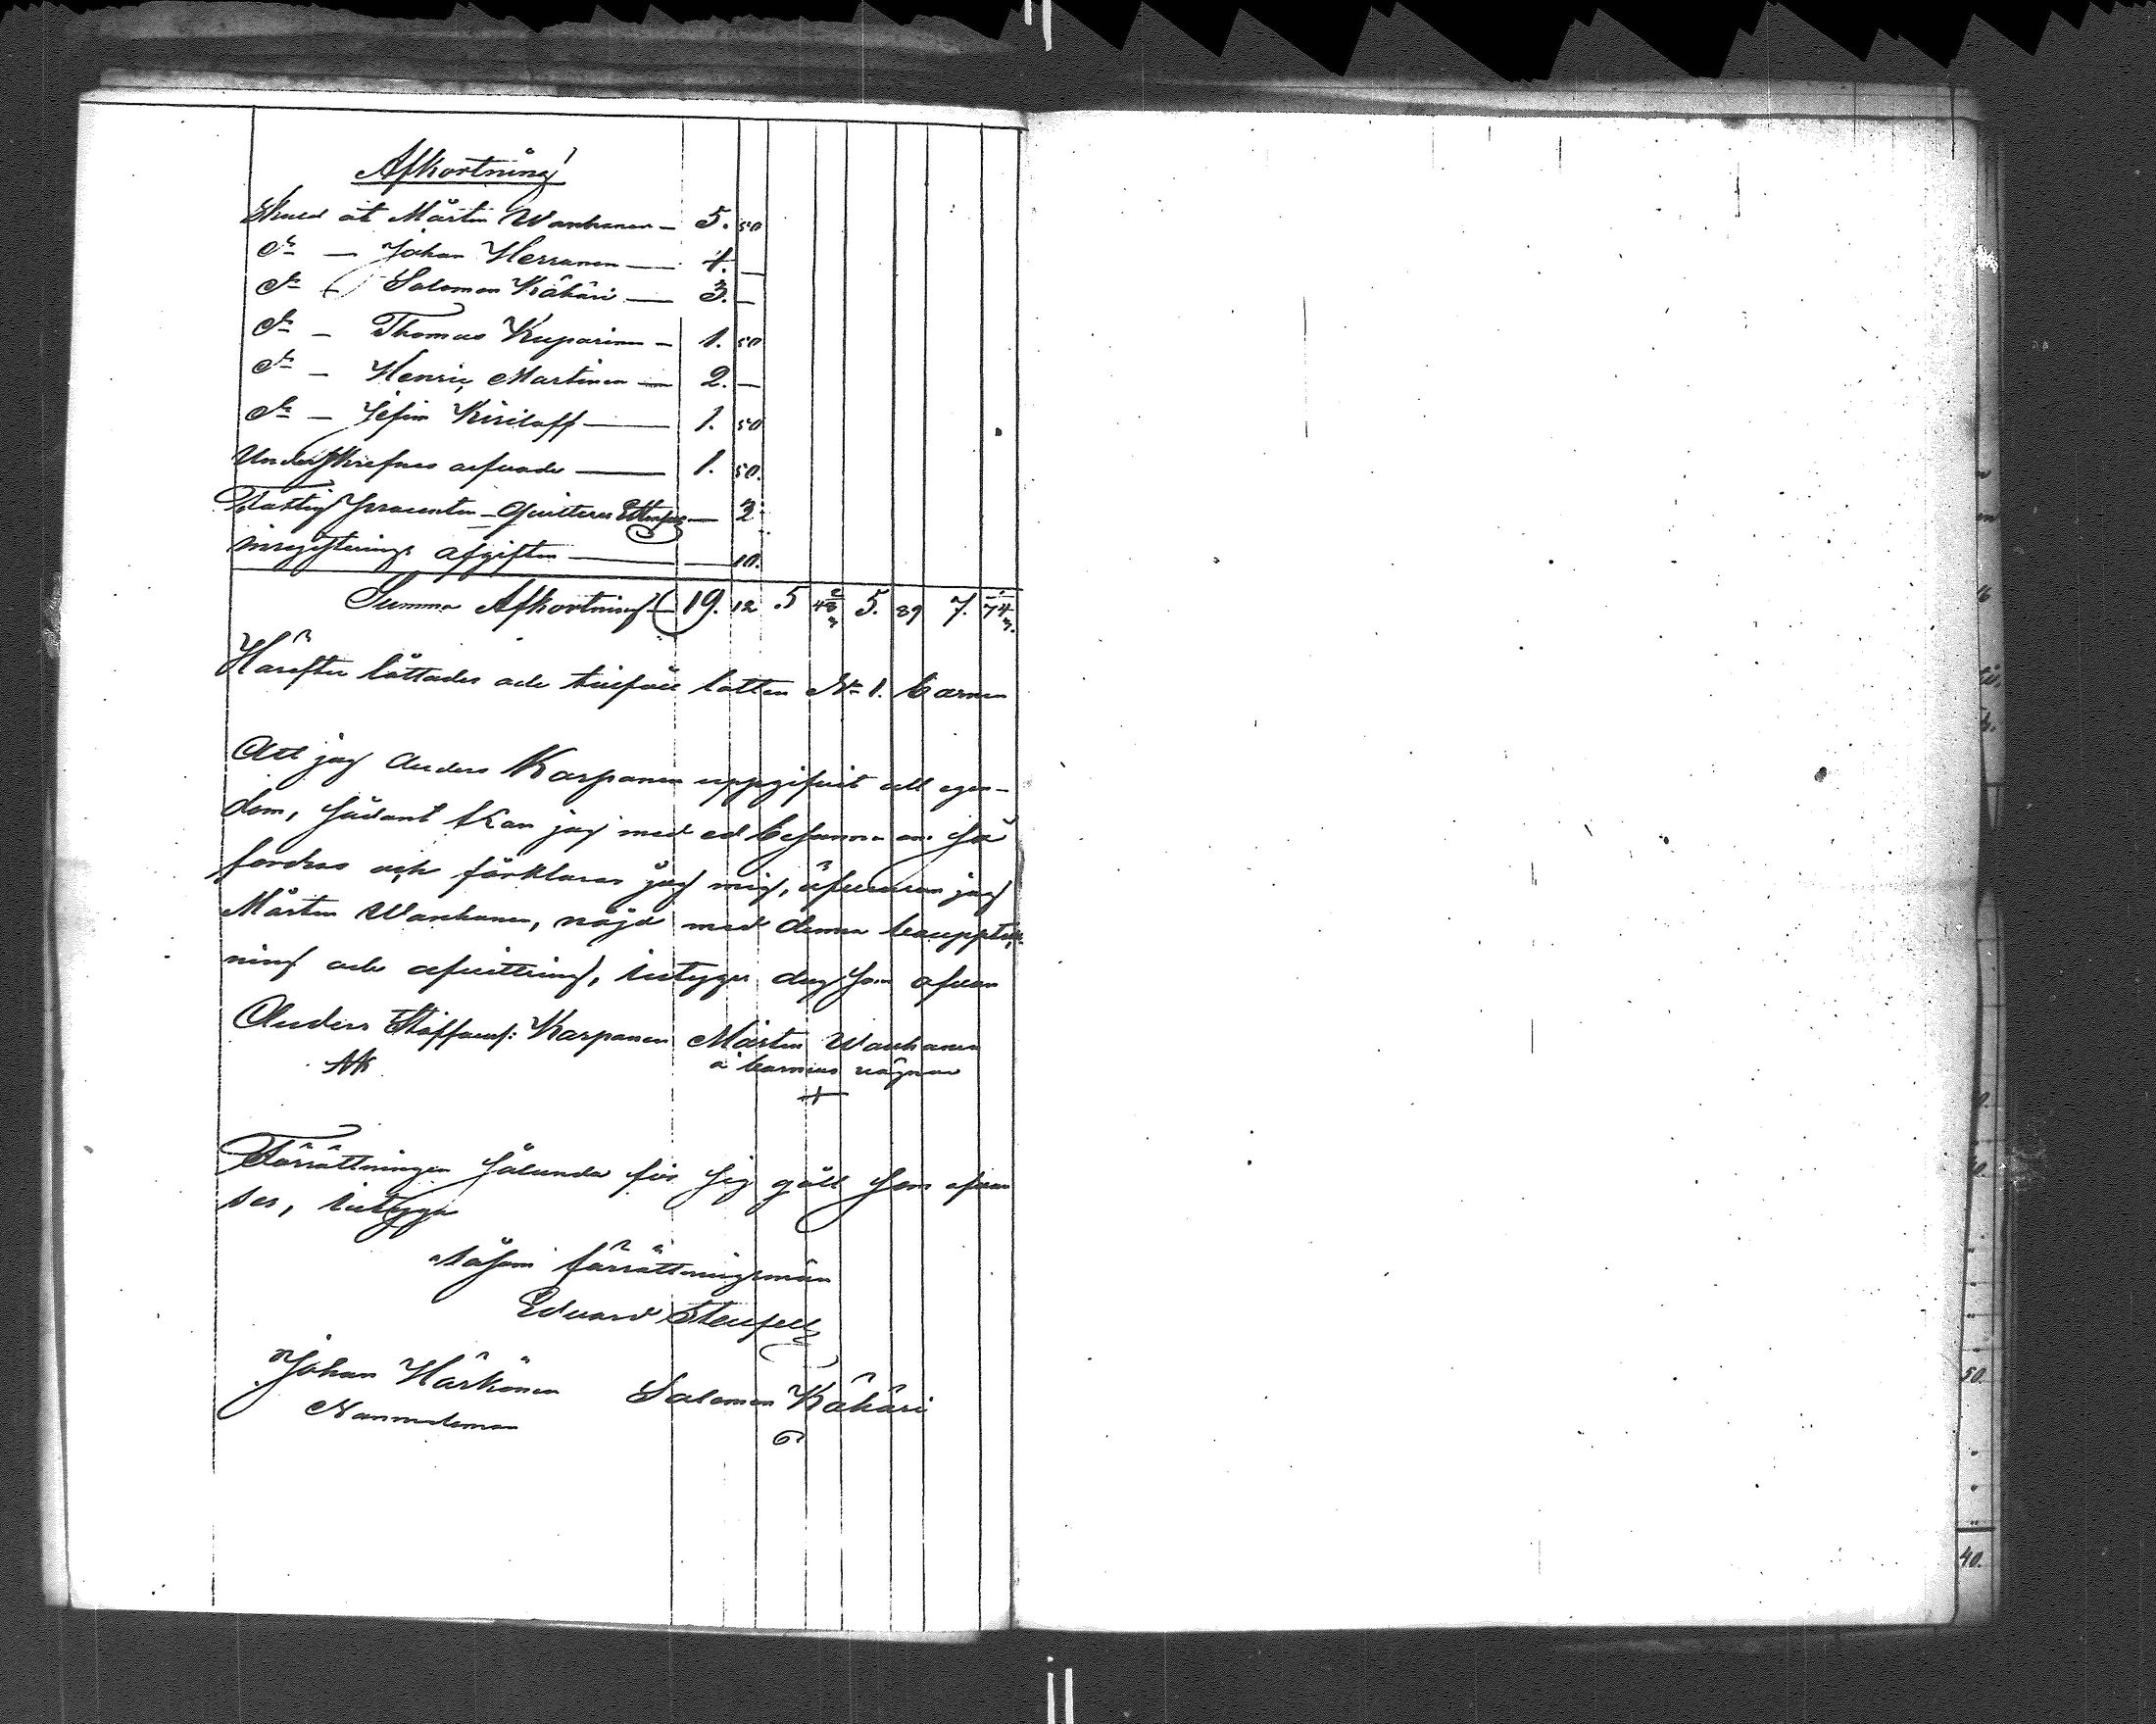 Afkortning
Skuld åt Mårten Wanhanen — 5. 50
do — Johan Herranen — 4. —
do — Salomon Kähäri — 3. —
do — Thomas Kuparinen — 1. 50
do — Henric Martinen — 2. —
do — Jefim Kiriloff — 1. 50
Underskrefnes arfvode — 1. 50.
Fattig procenten — Quitteras — 2
inregisterings afgiften — 10.
Summa Afkortning 19. 12 5 43 2/3 5. 89 7. 74
Härefter lottades och tillföll lotten No 1. barnen
Att jag Anders Karpanen uppgifvit all egen-
dom, sådant kan jag med ed besanna om så
fordras och förklarar jag mig, äfvensom jag
Mårten Wanhanen, nöjd med denna bouppteck-
ning och afvittring, intygar dag som ofvan
Anders Staffansson: Karpanen Mårten Wanhanen
AK å barnens vägnar
+
Förrättningen sålunda för sig gått som ofvan
ses, intyga
såsom förrättningsmän
Eduard Stenfelt
Johan Härkönen Salomon Kähäri
Nämndeman